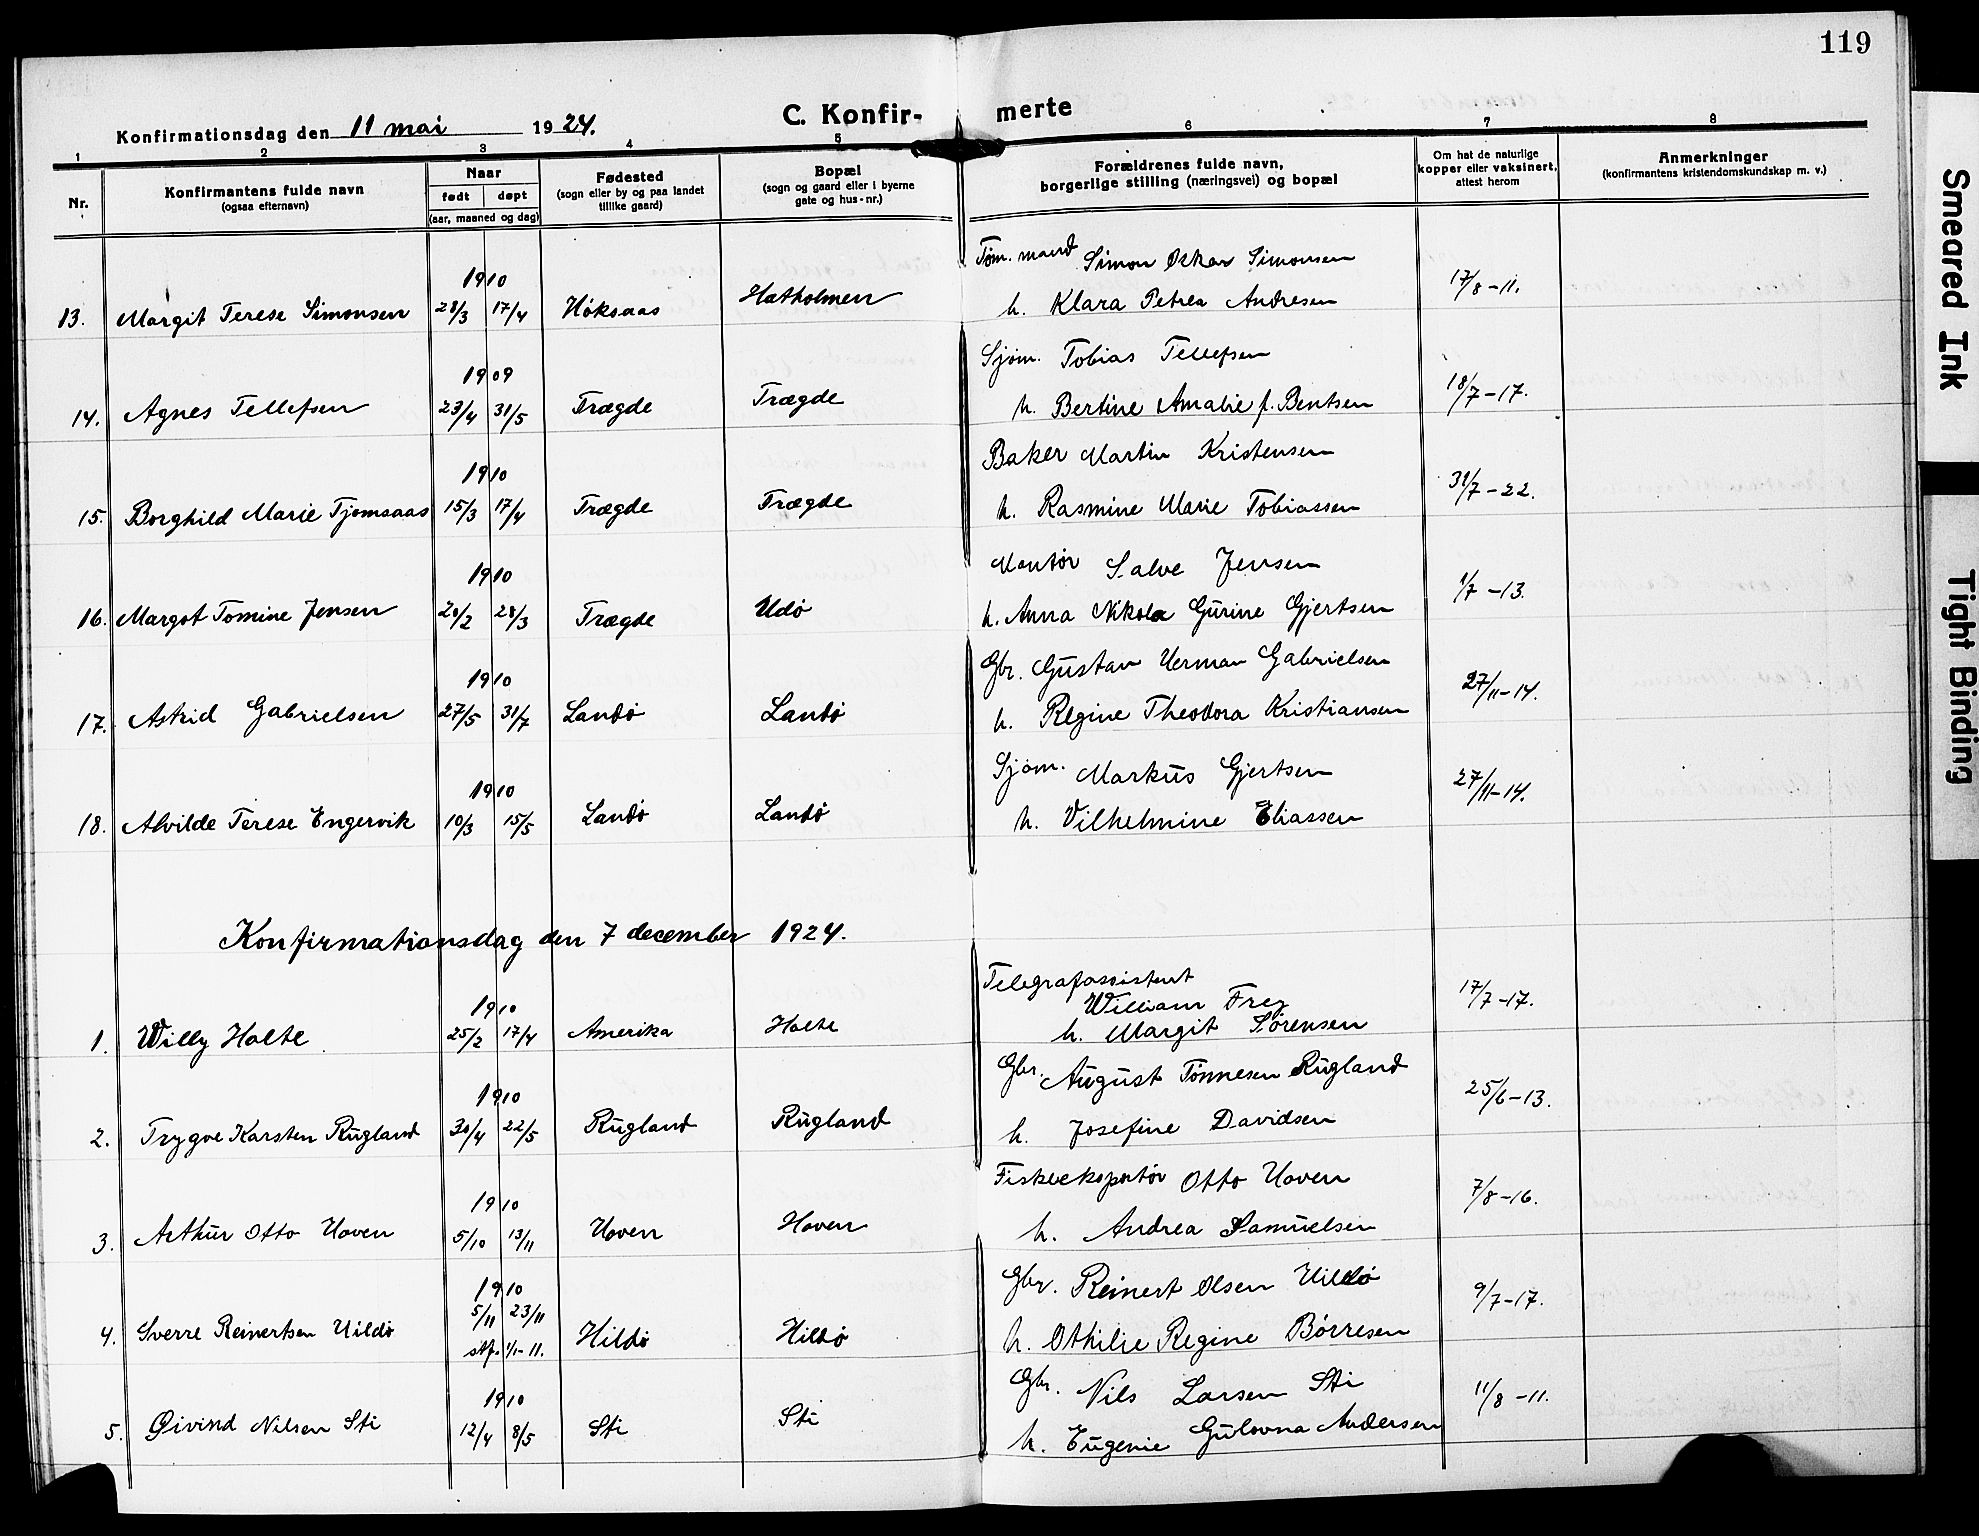 119
C. Konfir- merte
Konfirmationsdag den 11 mai 1924.
1 2 3 4 5 6 7 8
Nr.
Konfirmantens fulde navn
(ogsaa efternavn)
Naar
født døpt
(aar, maaned og dag)
Fødested
(sogn eller by og paa landet
tillike gaard)
Bopæl
(sogn og gaard eller i byerne
gate og hus-nr.)
Forældrenes fulde navn,
borgerlige stilling (næringsvei) og bopæl
Om hat de naturlige
kopper eller vaksinert,
attest herom
Anmerkninger
(konfirmantens kristendomskundskap m. v.)
1910 Tøm. mand Simon Oskar Simonsen
13. Margit Terese Simonsen 28/3 17/4 Høksaas Hatholmen h. Klara Petrea Andresen 17/8-11.
1909 Sjøm. Tobias Tellefsen
14. Agnes Tellefsen 23/4 31/5 Trægde Trægde h. Bertine Amalie f. Bentsen 18/7-17.
1910 Baker Martin Kristensen
15. Borghild Marie Tjomsaas 15/3 17/4 Trægde Trægde h. Rasmine Marie Tobiassen 31/7-22.
1910 Montør Salve Jensen
16. Margot Tomine Jensen 20/2 28/3 Trægde Udø h. Anna Nikola Gurine Gjertsen 1/7-13.
1910 Gbr. Gustav Herman Gabrielsen
17. Astrid Gabrielsen 27/5 31/7 Landø Landø h. Regine Theodora Kristiansen 27/11-14.
1910 Sjøm. Markus Gjertsen
18. Alvilde Terese Engervik 10/3 15/5 Landø Landø h. Vilhelmine Eliassen 27/11-14.
Konfirmationsdag den 7 december 1924.
Telegrafassistent
1910 William Frey
1. Willy Holte 25/2 17/4 Amerika Holte h. Margit Sørensen 17/7-17.
1910 Gbr. August Tønnesen Rugland
2. Trygve Karsten Rugland 30/4 22/5 Rugland Rugland h. Josefine Davidsen 25/6-13.
1910 Fiskeeksportør Otto Hoven
3. Arthur Otto Hoven 5/10 13/11 Hoven Hoven h. Andrea Samuelsen 7/8-16.
1910 Gbr. Reinert Olsen Hildø
5/11 23/11
4. Sverre Reinertsen Hildø stf. 1/1-11. Hildø Hildø h. Othilie Regine Børresen 9/7-17.
1910 Gbr. Nils Larsen Sti
5. Øivind Nilsen Sti 12/4 8/5 Sti Sti h. Eugenie Gulovna Andersen 11/8-11.
Smeared Ink
Tight Binding